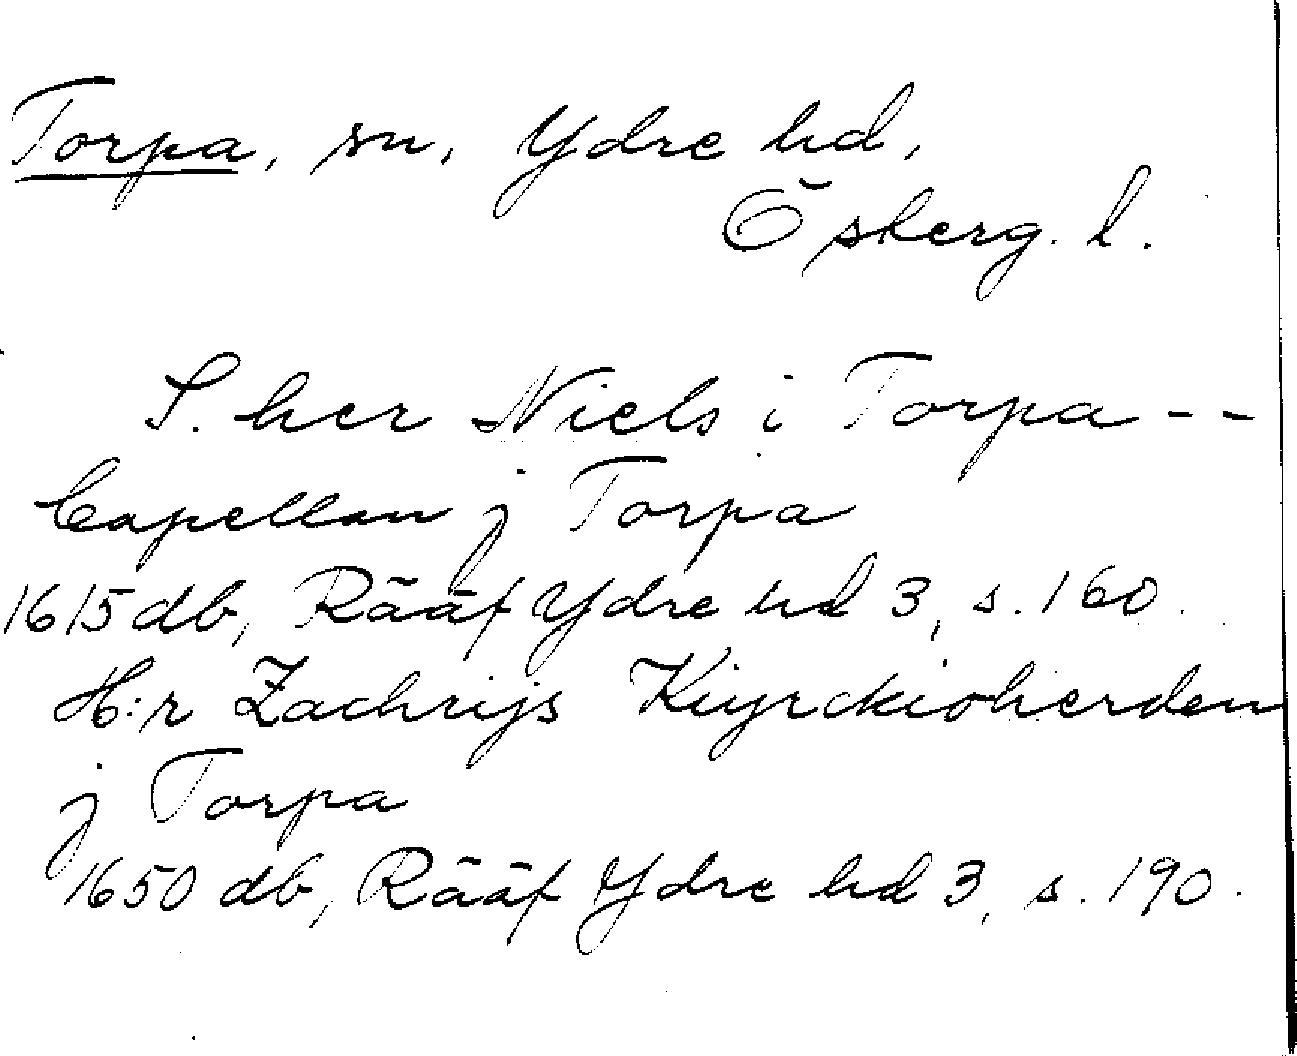 Torpa, sn, Ydre hd,
Östergl. l.
S. her Niels i Torpa --
Capellan j Torpa
1615 db, Rääf Ydre hd 3, s. 160.
H:r Zachrijs Kiyrckioherden
j Torpa
1650 db, Rääf Ydre hd 3, s. 190.